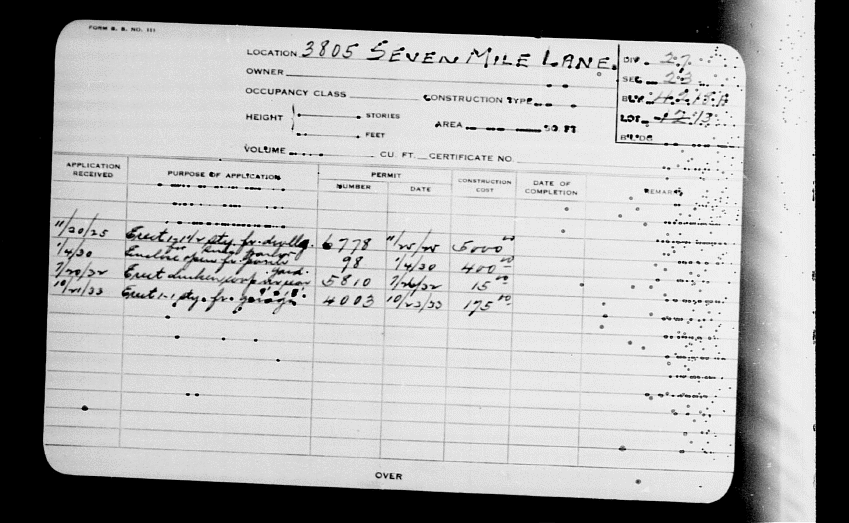 FORM B. B. NO. 111
LOCATION 3805 SEVEN MILE LANE. DIV. 27
OWNER SEC. 23
OCCUPANCY CLASS CONSTRUCTION TYPE BLK.
HEIGHT STORIES AREA SQ FT LOT 13
FEET BLDG
VOLUME CU. FT. CERTIFICATE NO.
APPLICATION RECEIVED PURPOSE OF APPLICATION PERMIT CONSTRUCTION COST DATE OF COMPLETION REMARKS
NUMBER DATE
11/20/25 Erect 1-1½ sty. fr. dwllg. 6778 11/25/25 5000 00
1/4/30 Enclose open fr. 98 1/4/30 400 00
7/20/32 Erect in rear yard. 5810 7/26/32 15 00
10/21/33 Erect 1-1 sty. fr. garage 4003 10/23/33 175 00
OVER